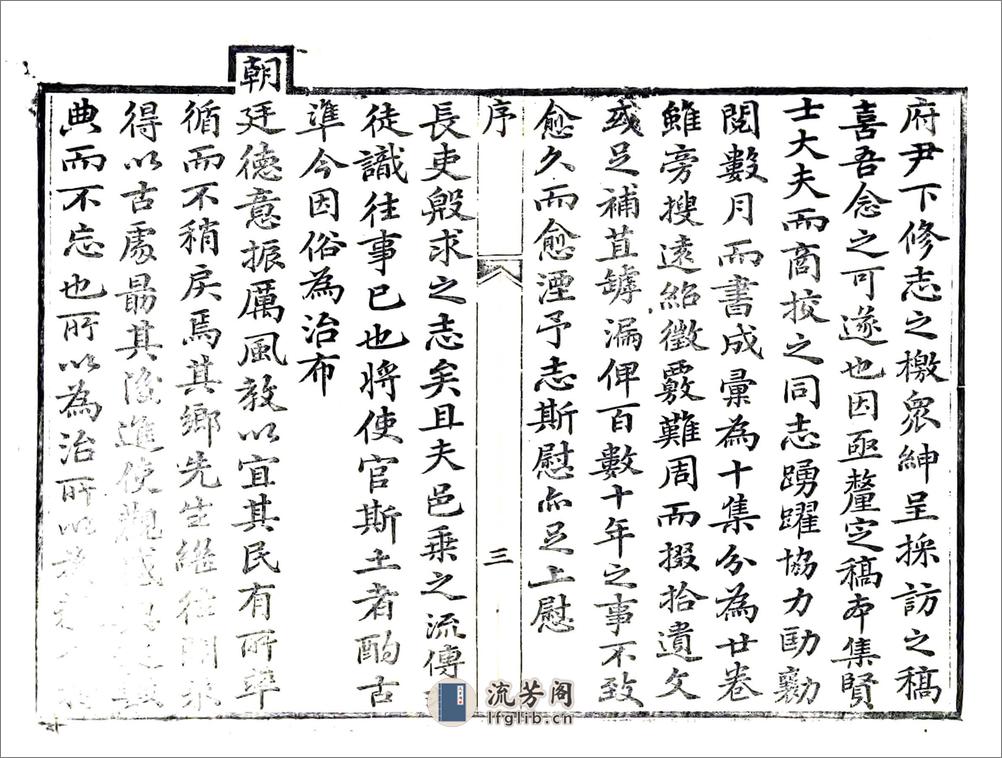 府尹下修志之檄眾紳呈採訪之稿
喜吾念之可遂也因亟釐定稿本集賢
士大夫而商挍之同志踴躍協力勷
閱數月而書成彙為十集分為廿卷
雖旁搜遠紹徵覈難周而掇拾遺文
或足補苴罅漏俾百數十年之事不致
愈久而愈湮予志斯慰亦足上慰
序
三
長吏殷求之志矣且夫邑乗之流傳
徒識往事已也將使官斯土者酌古
準今因俗為治布
朝
廷德意振厲風教以宜其民有所率
循而不稍戾焉其鄉先生繼往開來
得以古處勗其後進使觀感
典而不忘也所以為治所以
流芳阁
lfglib.cn